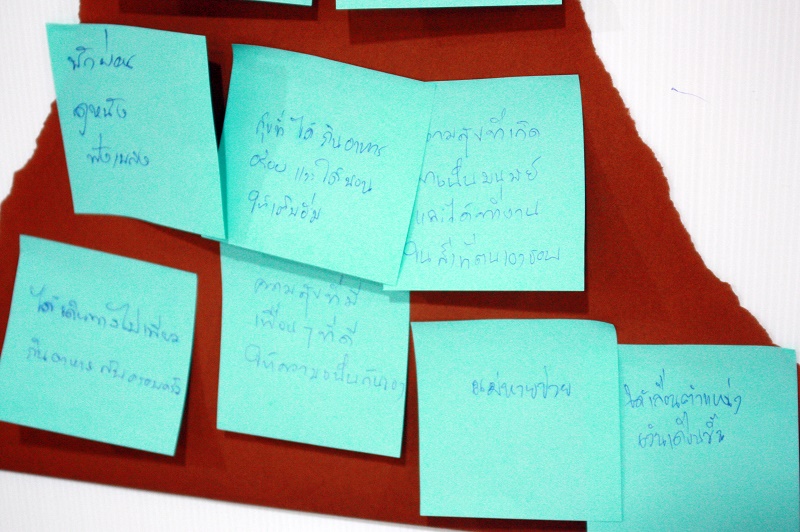 พักผ่อน
ดูหนัง
ฟังเพลง
สุขที่ได้กินอาหาร
อร่อย และได้นอน
ให้เต็มอิ่ม
ความสุขที่เกิด
เป็นมนุษย์
และได้ทำงาน
ในสิ่งที่ตนเองชอบ
ได้เดินทางไปเที่ยว
กินอาหารกับครอบครัว
ความสุขที่มี
เพื่อนๆที่ดี
ให้ความ
แม่หายป่วย
ได้เลื่อนตำแหน่ง
ขึ้น